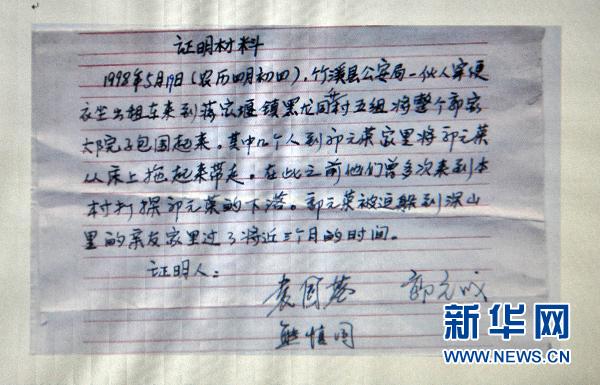 证明材料
1998年5月19日(农历四月初四),竹溪县公安局一伙人穿便
衣坐出租车来到蒋家堰镇黑龙洞村五组将整个郭家
大院子包围起来。其中几个人到郭元荣家里将郭元荣
从床上拖起来带走。在此之前他们曾多次来到本
村打探郭元荣的下落。郭元荣被迫躲到深山
里的亲友家里过了将近三个月的时间。
证明人:
郭元成
新华网
WWW.NEWS.CN